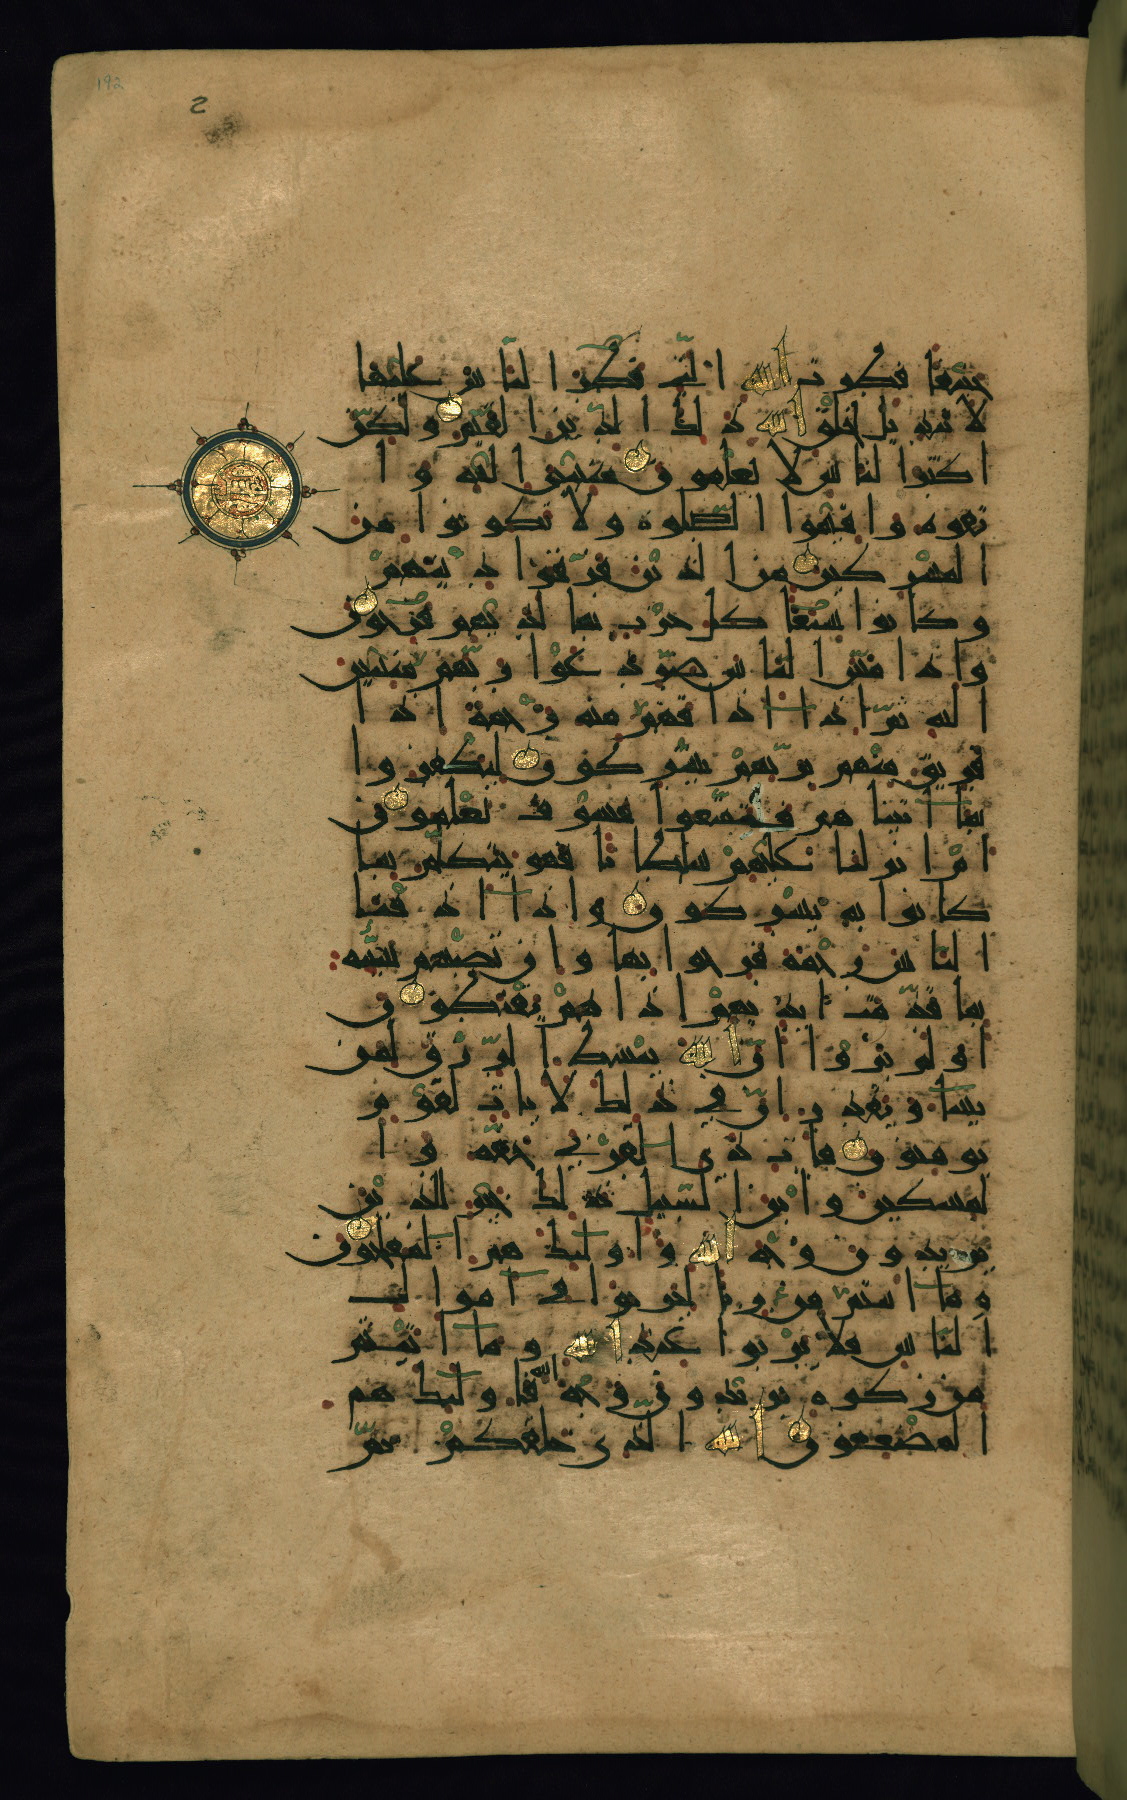 192
2
حنيفا فطرت الله التي فطر الناس عليها
لا تبديل لخلق الله ذلك الدين القيم ولكن
اكثر الناس لا يعلمون منيبين اليه وا
تقوه واقيموا الصلوة ولا تكونوا من
المشركين من الذين فرقوا دينهم
وكانوا شيعا كل حزب بما لديهم فرحون
واذا مس الناس ضر دعوا ربهم منيبين
اليه ثم اذا اذاقهم منه رحمة اذا
فريق منهم بربهم يشركون ليكفروا
بما اتيناهم فتمتعوا فسوف تعلمون
ام انزلنا عليهم سلطانا فهو يتكلم بما
كانوا به يشركون واذا اذقنا
الناس رحمة فرحوا بها وان تصبهم سيئة
بما قدمت ايديهم اذا هم يقنطون
اولم يروا ان الله يبسط الرزق لمن
يشا ويقدر ان في ذلك لايات لقوم
يومنون فات ذا القربى حقه وا
لمسكين وابن السبيل ذلك خير للذين
يريدون وجه الله واولئك هم المفلحون
وما اتيتم من ربا ليربوا في اموال
الناس فلا يربوا عند الله وما اتيتم
من زكوه تريدون وجه الله فاولئك هم
المضعفون الله الذي خلقكم ثم